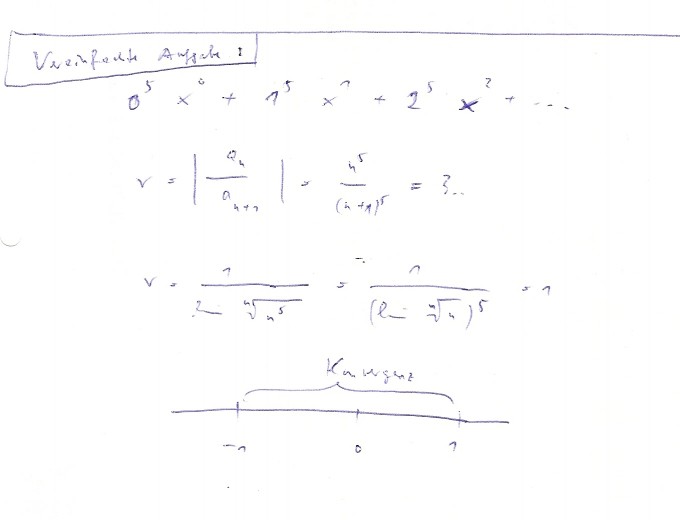 Vereinfachte Aufgabe:
0^5 x^0 + 1^5 x^1 + 2^5 x^2 + ....
r = | a_n / a_{n+1} | = n^5 / (n+1)^5 =
r = 1 / (lim ⁿ√(n^5)) = 1 / (lim ⁿ√n)^5 = 1
Konvergenz
-1 0 1